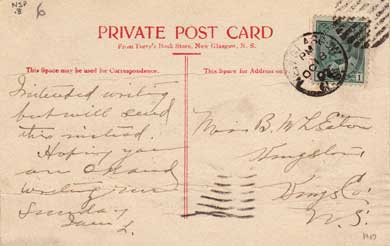 NSP
.8
6
PRIVATE POST CARD
From Torry's Book Store, New Glasgow, N. S.
This Space may be used for Correspondence.
This Space for Address on
Intended writing
but will send
this instead.
Hoping you
are
writing
Sunday
Miss B. W. L. Eaton
Kingston
Kings Co.
N.S.
1